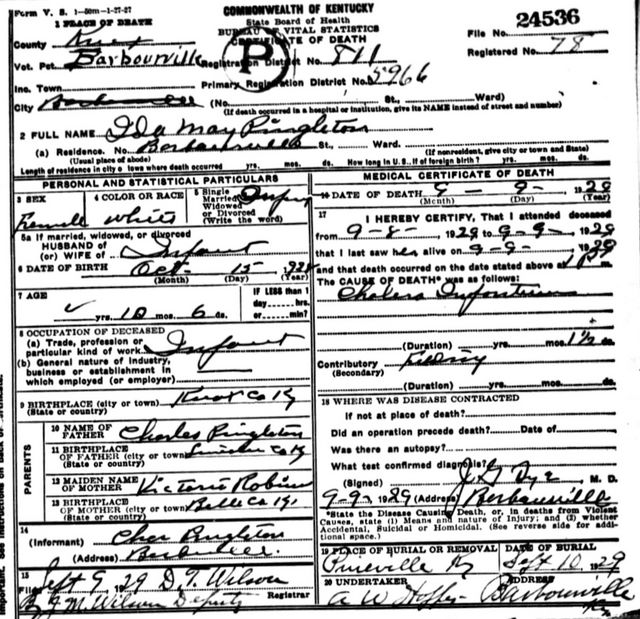 Form V. S. 1-50m-1-27-27
COMMONWEALTH OF KENTUCKY
State Board of Health
BUREAU OF VITAL STATISTICS
CERTIFICATE OF DEATH
24536
File No.
Registered No. 78
1 PLACE OF DEATH
County Knox
Vot. Pct. Barbourville
Registration District No. 811
P
Inc. Town
Primary Registration District No. 5966
City Barbourville (No. St., Ward)
(If death occurred in a hospital or institution, give its NAME instead of street and number)
2 FULL NAME Ida May Pingleton
(a) Residence. No. Barbourville St., Ward.
(Usual place of abode) (If nonresident, give city or town and State)
Length of residence in city or town where death occurred yrs. mos. ds. How long in U. S., if of foreign birth? yrs. mos. ds.
PERSONAL AND STATISTICAL PARTICULARS
3 SEX
Female
4 COLOR OR RACE
White
5 Single
Married
Widowed
or Divorced
(Write the word)
Infant
5a If married, widowed, or divorced
HUSBAND of
(or) WIFE of Infant
6 DATE OF BIRTH Oct 15 1928
(Month) (Day) (Year)
7 AGE
yrs. 10 mos. 6 ds.
IF LESS than 1
day hrs.
or min.?
8 OCCUPATION OF DECEASED
(a) Trade, profession or
particular kind of work Infant
(b) General nature of industry,
business or establishment in
which employed (or employer)
9 BIRTHPLACE (city or town) Knox Co Ky
(State or country)
PARENTS
10 NAME OF
FATHER Charles Pingleton
11 BIRTHPLACE
OF FATHER (city or town) Co Ky
(State or country)
12 MAIDEN NAME
OF MOTHER Victoria
13 BIRTHPLACE
OF MOTHER (city or town) Bell Co Ky
(State or country)
14
(Informant) Chas Pingleton
(Address) Barbourville
15
Filed Sept 9, 1929 D. T. Wilson
Registrar
By J M Wilson Deputy
MEDICAL CERTIFICATE OF DEATH
16 DATE OF DEATH 9 - 9 - 1929
(Month) (Day) (Year)
17
I HEREBY CERTIFY, That I attended deceased
from 9-8-, 1929 to 9-9-, 1929
that I last saw her alive on 9-9-, 1929
and that death occurred on the date stated above at
The CAUSE OF DEATH* was as follows:
Cholera Infantum
(Duration) yrs. mos. 1½ ds.
Contributory
(Secondary)
(Duration) yrs. mos. ds.
18 WHERE WAS DISEASE CONTRACTED
If not at place of death?
Did an operation precede death? Date of
Was there an autopsy?
What test confirmed diagnosis?
(Signed) Dye, M. D.
9-9-, 1929 (Address) Barbourville
*State the Disease Causing Death, or, in deaths from Violent
Causes, state (1) Means and nature of Injury; and (2) whether
Accidental, Suicidal or Homicidal. (See reverse side for addi-
tional space.)
19 PLACE OF BURIAL OR REMOVAL
Pineville Ky
DATE OF BURIAL
Sept 10, 1929
20 UNDERTAKER
A W
ADDRESS
Barbourville
Ky